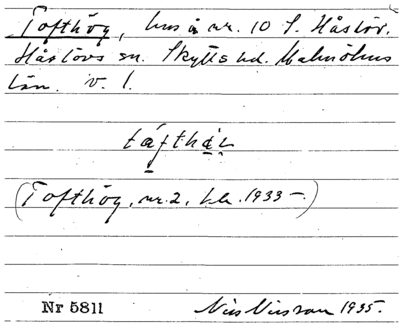 Tofthög, hus å nr. 10 S. Håslöv.
Håslövs sn. Skytts hd. Malmöhus
län. v. 1.
(Tofthög, nr. 2, 1933–.)
Nr 5811 Nils Nilsson 1935.